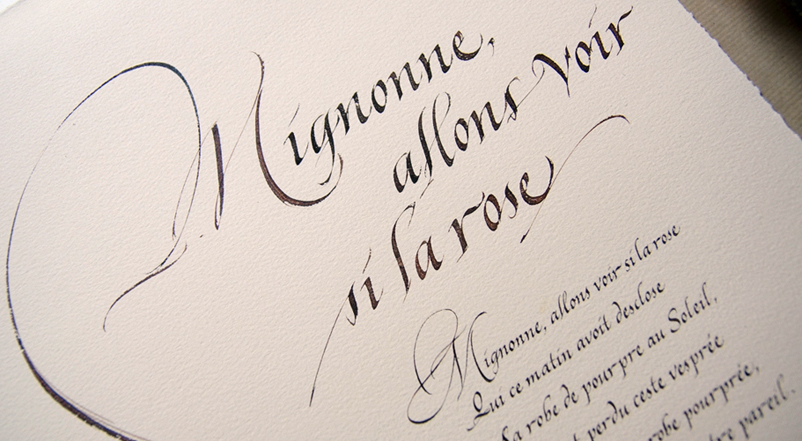 Mignonne,
allons voir
si la rose
Mignonne, allons voir si la rose
Qui ce matin avoit desclose
Sa robe de pourpre au Soleil,
perdu ceste vesprée
robe pourprée,
pareil.